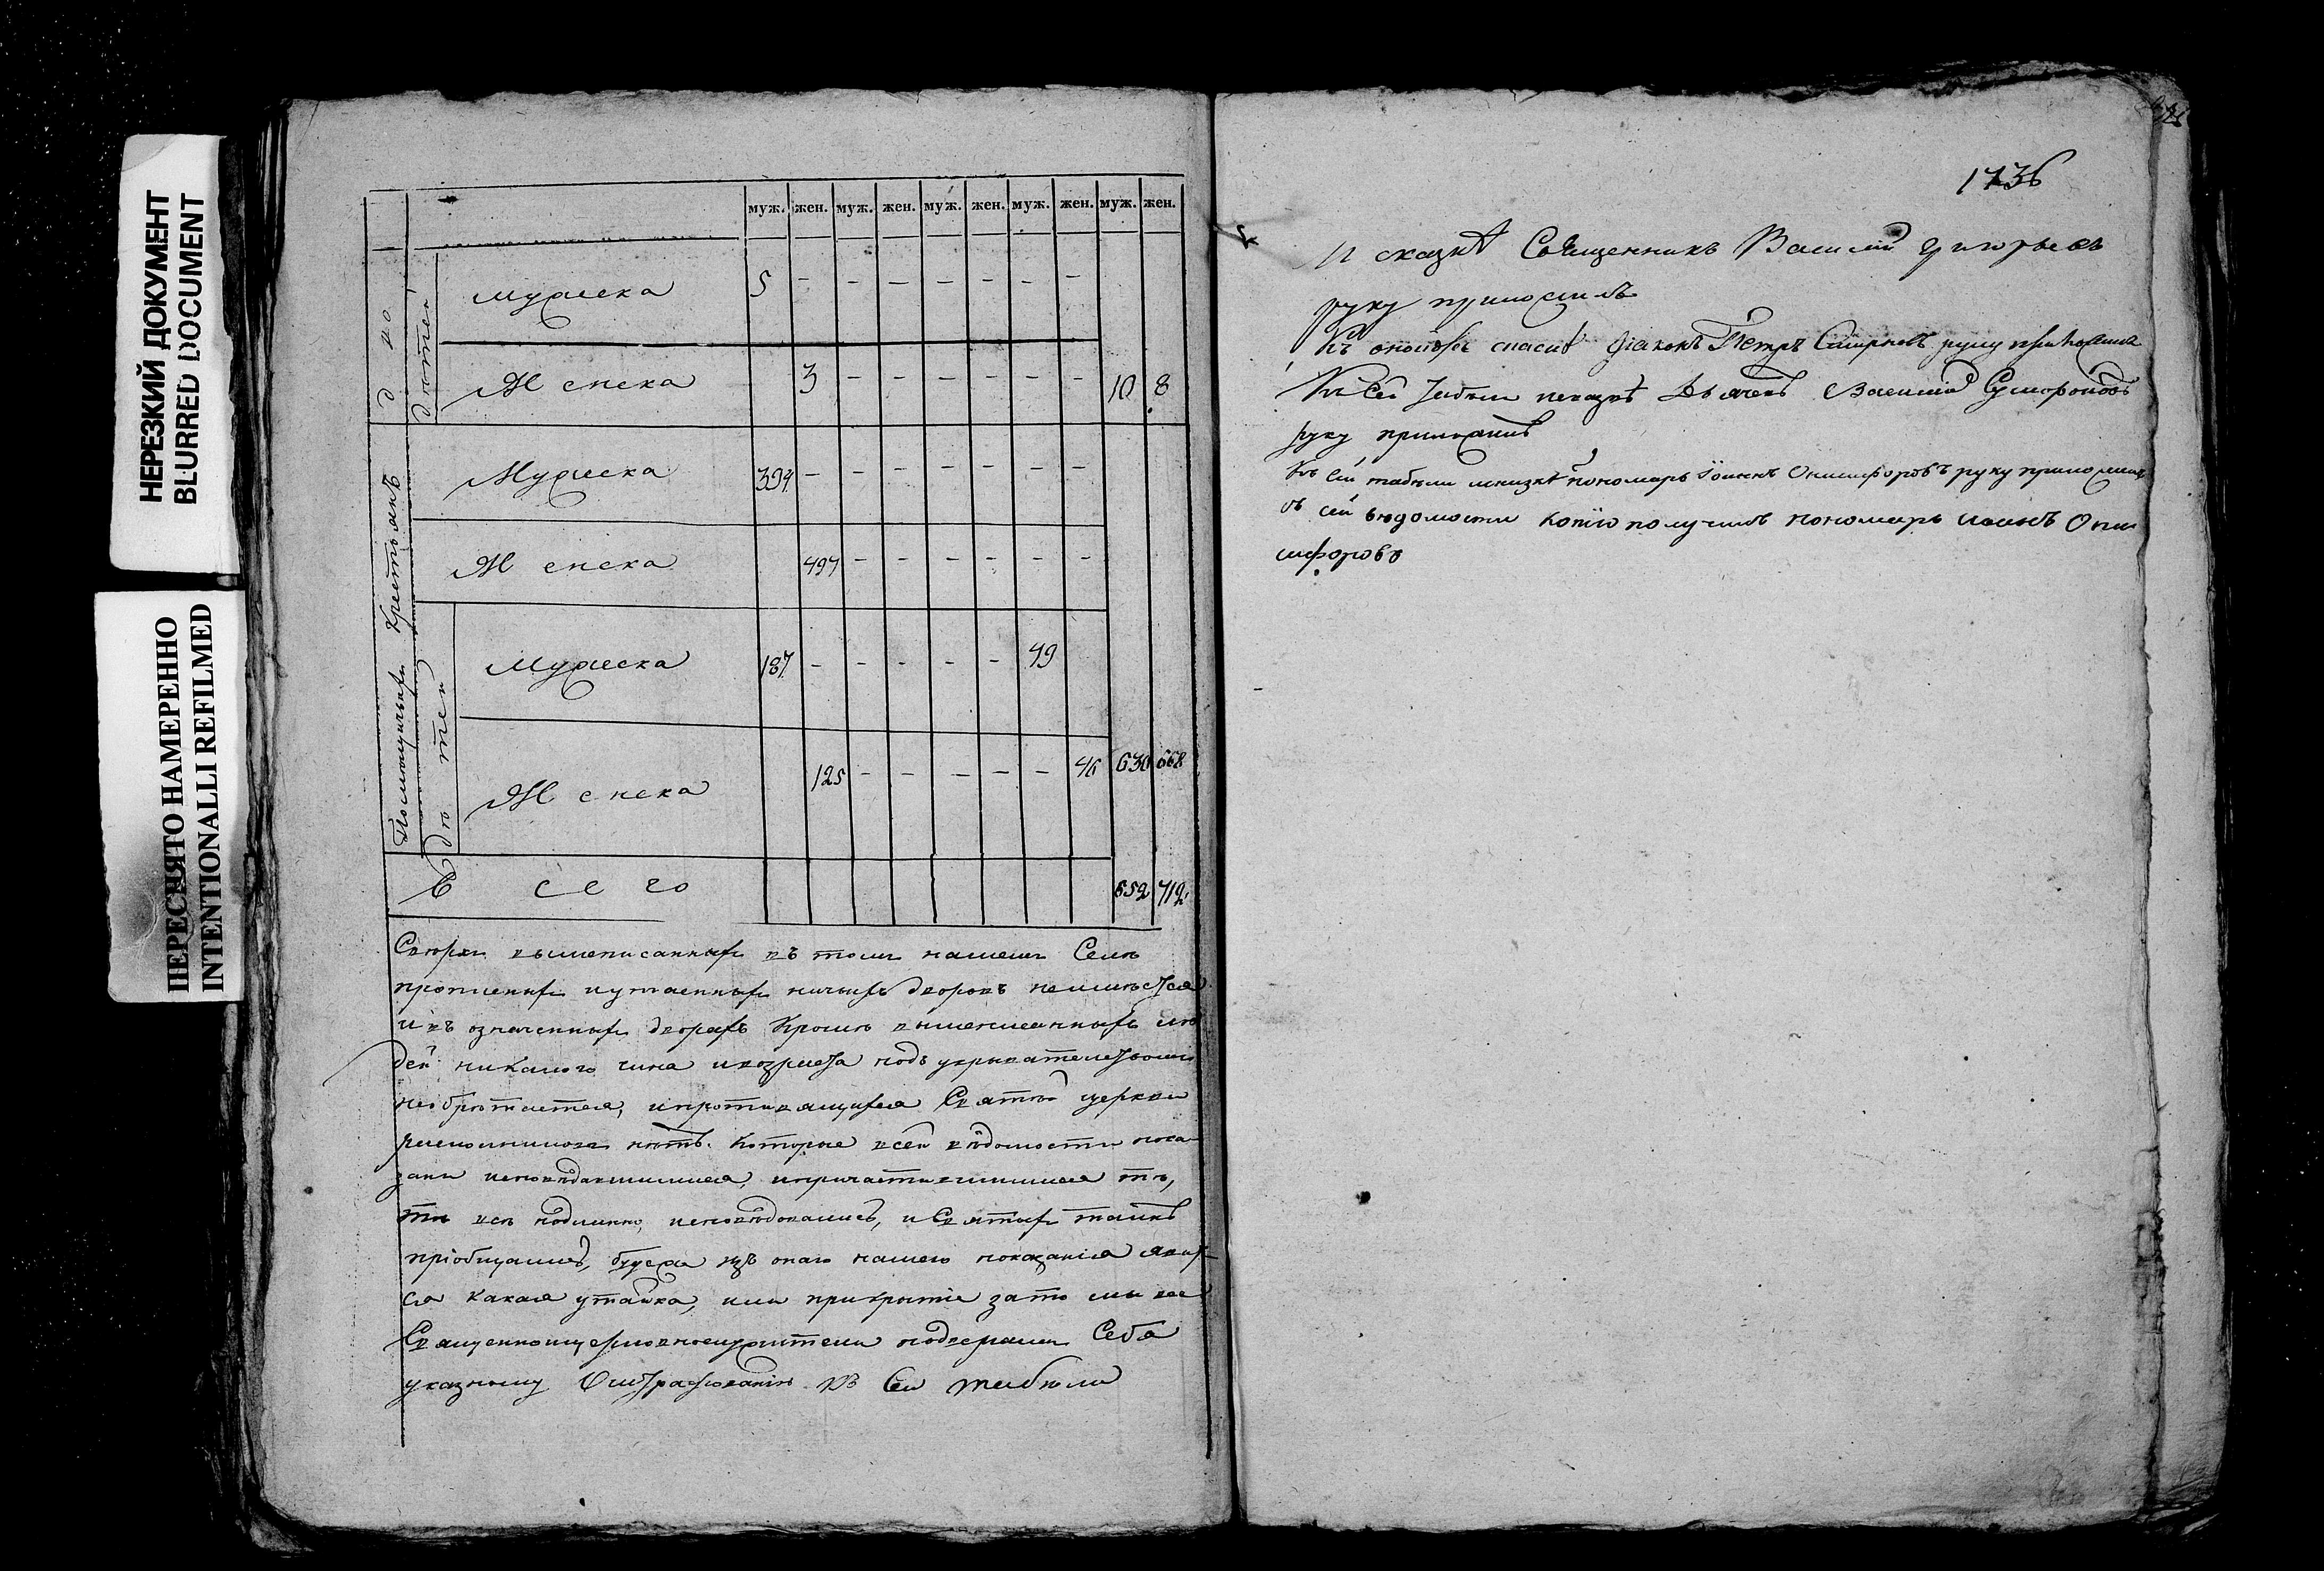 НЕРЕЗКИЙ ДОКУМЕНТ
BLURRED DOCUMENT
ПЕРЕСНЯТО НАМЕРЕННО
INTENTIONALLI REFILMED
муж. жен. муж. жен. муж. жен. муж. жен. муж. жен.
дѣтей
мужеска 5 – – – – – – –
Женска 3 – – – – – – 10 8
Помѣщичьихъ Крестьянъ
Мужеска 394 – – – – – – –
Женска 497 – – – – – –
дѣтей
Мужеска 187 – – – – – 49
Женска 125 – – – – – 46 630 668
Всего 652 712
Сверхъ вышеписанныхъ въ томъ нашемъ Селѣ
прописныхъ и утаенныхъ ничьихъ дворовъ неимѣется
и въ означенныхъ дворахъ кромѣ вышеписанныхъ лю
дей никакого чина и возраста подъ укрывательствомъ
необрѣтается, и противящихся Святѣй церкви
нѣтъ. Которые всей вѣдомости пока
заны исповѣдавшимися, и причастившимися тѣ,
тѣ всѣ подлинно, исповѣдовались, и Святыхъ таинъ
пріобщались, буде же изъ онаго нашего показанія явит
ся какая утайка, или прикрытіе за то мы все
Священноцерковнослужители подвергаемъ Себя
указному Оштрафованію Къ Сей табѣли
1736
и сказкѣ Священникъ Василій Григорьевъ
руку приложилъ
Къ оной скаскѣ діаконъ Петръ Смирновъ руку приложилъ
Къ Сей табели исказкѣ Дьячекъ Василій
руку приложилъ
Къ сей табели исказкѣ пономарь Іоаннъ Онисифоровъ руку приложилъ
съ сей вѣдомости копію получилъ пономарь Иоанъ Они
сифоровъ